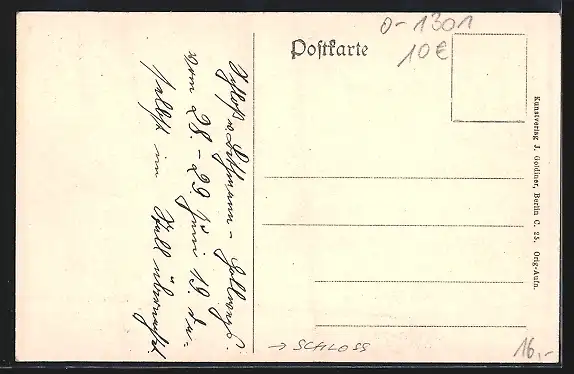 Schloß v. Bethmann-Hollwegs
vom 28.-29. Juni 19. da-
selbst im Stall übernachtet.
Postkarte
0-1301
10€
Kunstverlag J. Goldiner, Berlin C. 25. Orig-Aufn.
→ SCHLOSS
16,-